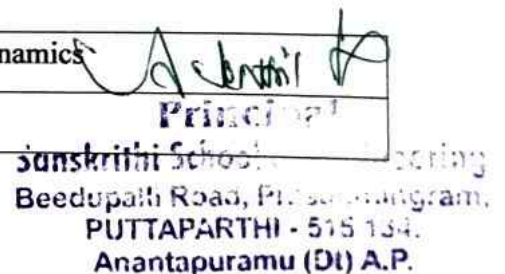 namics
Principal
Sanskrithi School
Beedupalli Road,
PUTTAPARTHI - 515 134.
Anantapuramu (Dt) A.P.